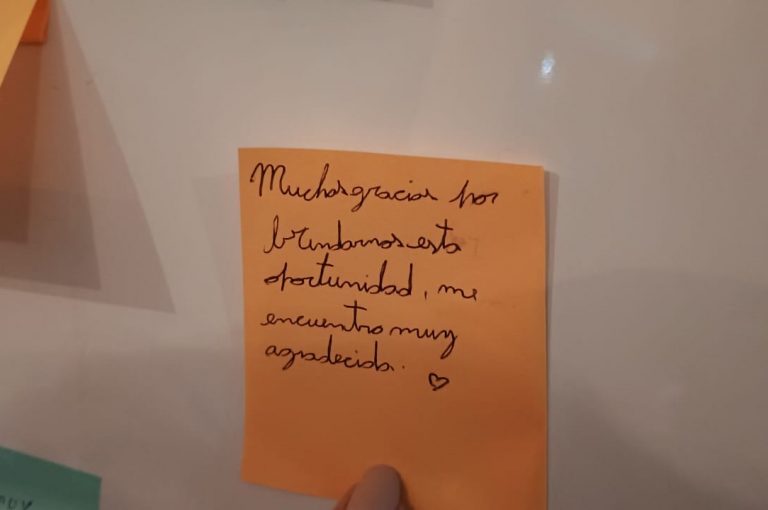 Muchas gracias por
brindarnos esta
oportunidad, me
encuentro muy
agradecida. ♡